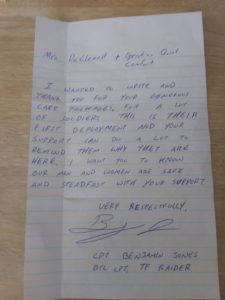 Mrs. + Ignition Quiet
I WANTED TO WRITE AND
THANK YOU FOR YOUR GENEROUS
CARE PACKAGES. FOR A LOT
OF SOLDIERS THIS IS THEIR
FIRST DEPLOYMENT AND YOUR
SUPPORT CAN DO A LOT TO
REMIND THEM WHY THEY ARE
HERE. I WANT YOU TO KNOW
OUR MEN AND WOMEN ARE SAFE
AND STEADFAST WITH YOUR SUPPORT
VERY RESPECTFULLY,
CPT BENJAMIN JONES
TF RAIDER